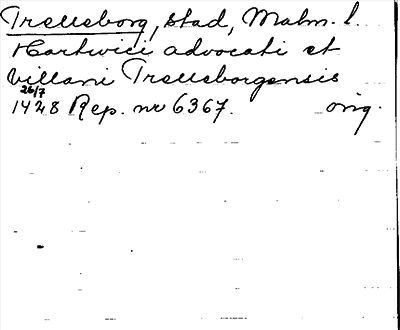 Trelleborg, stad, Malm. l.
Hartwici advocati et
villani Trelleborgensis
26/7
1428 Rep. nr 6367. orig.